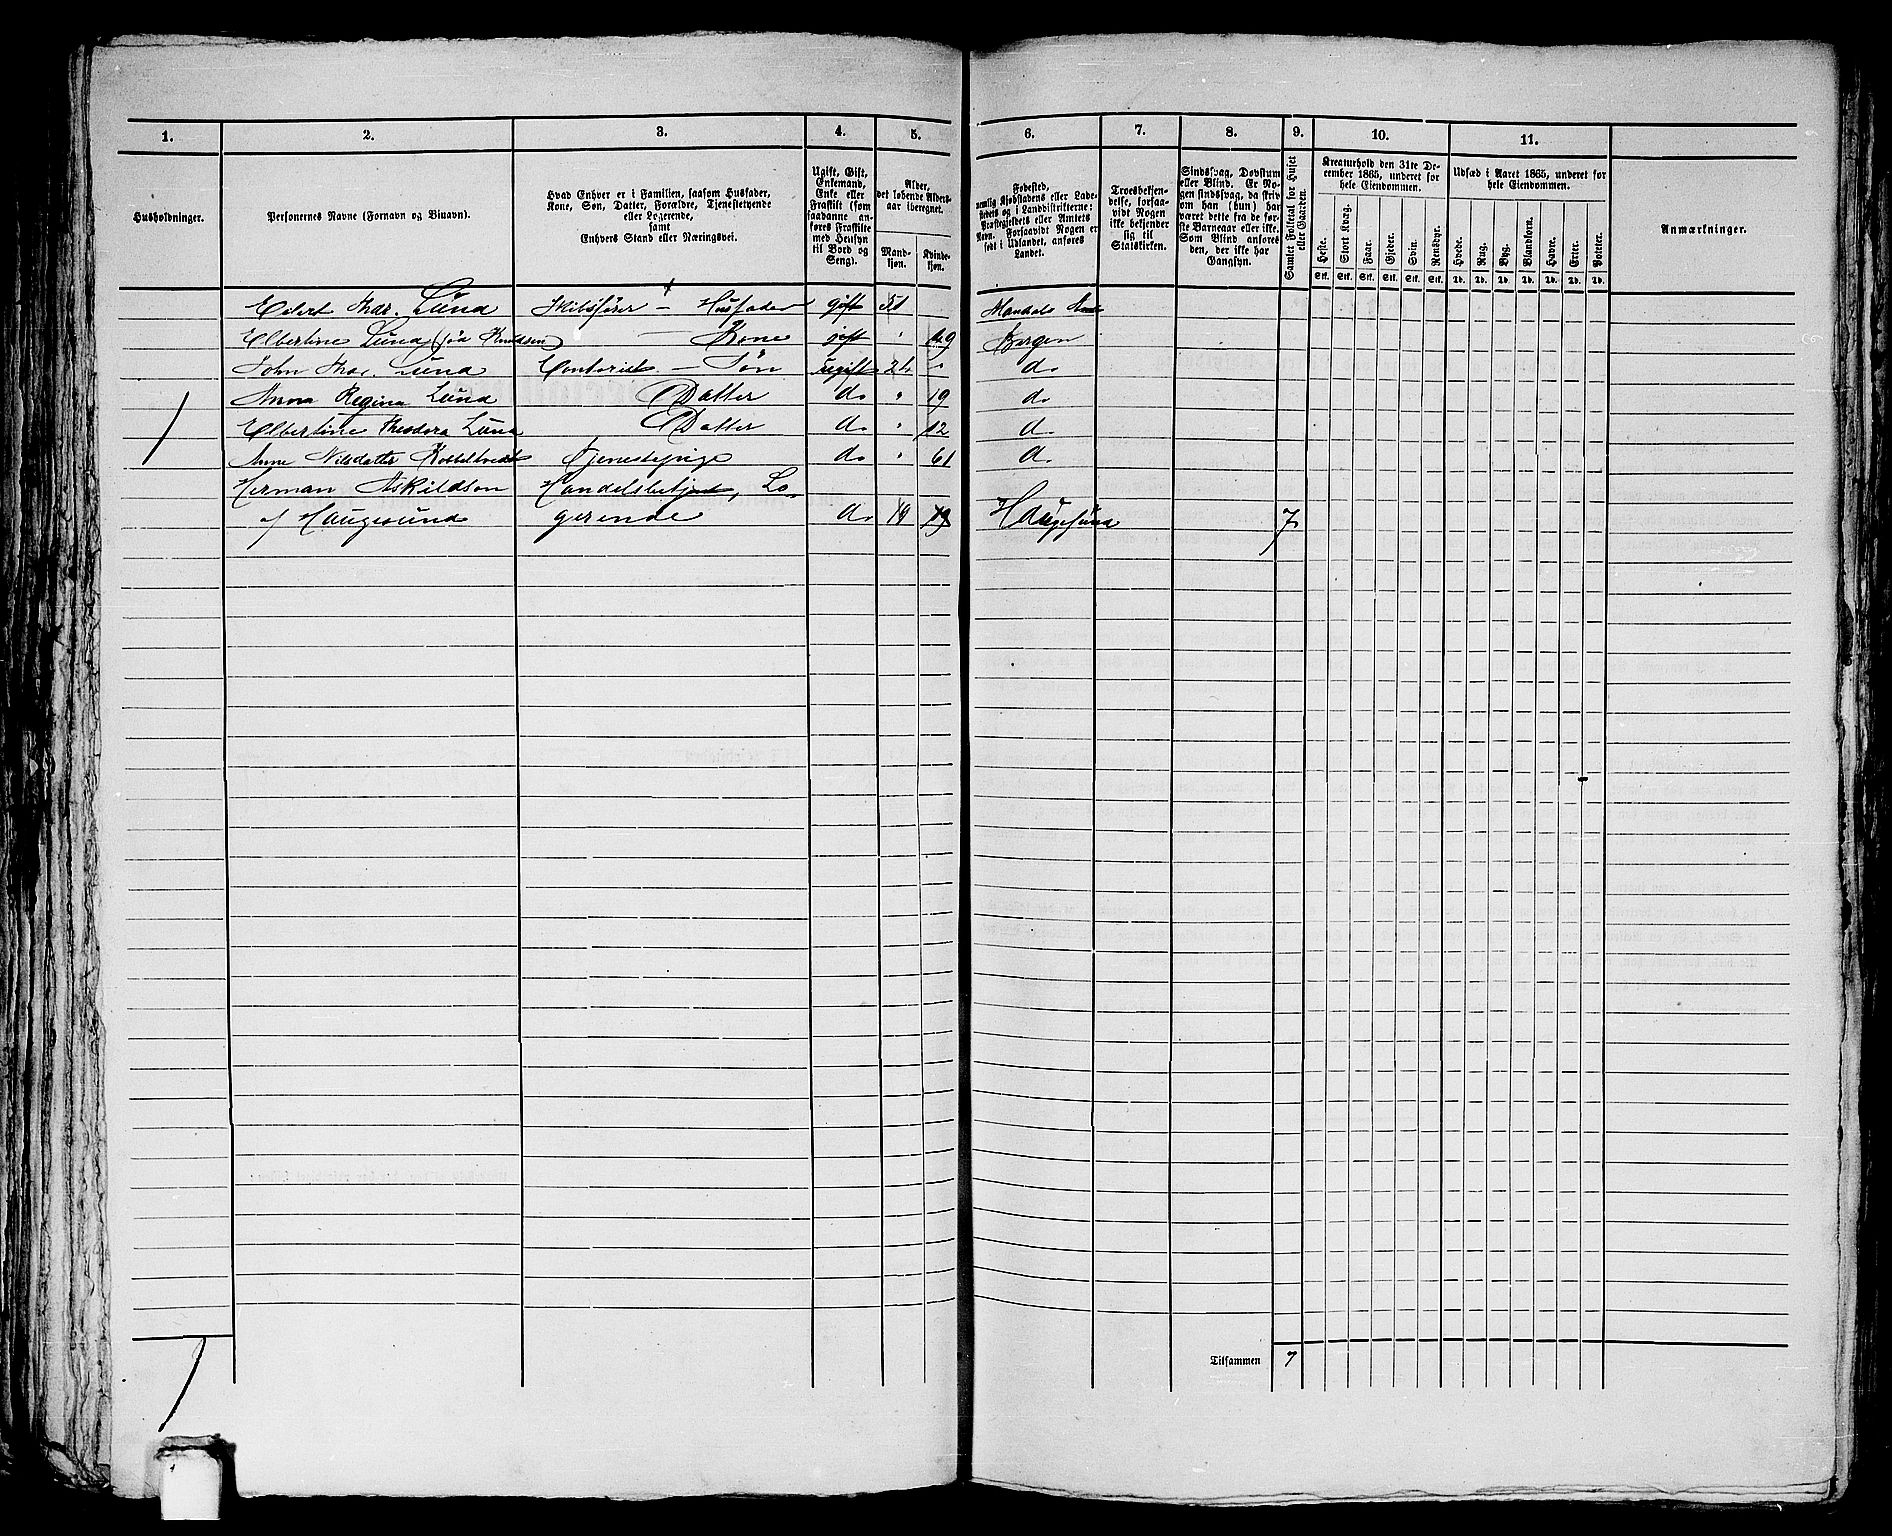 1. 2. 3. 4. 5. 6. 7. 8. 9. 10. 11.
Husholdninger.
Personernes Navne (Fornavn og Binavn).
Hvad Enhver er i Familien, saasom Husfader,
Kone, Søn, Datter, Forældre, Tjenestetyende
eller Logerende,
samt
Enhvers Stand eller Næringsvei.
Ugift, Gift,
Enkemand,
Enke eller
Fraskilt (som
saadanne an-
føres Fraskilte
med Hensyn
til Bord og
Seng).
Alder,
det løbende Alders-
aar iberegnet.
Mand-
kjøn.
Kvinde-
kjøn.
Fødested,
nemlig Kjøbstadens eller Lade-
stedets og i Landdistrikterne:
Præstegjeldets eller Amtets
Navn. Forsaavidt Nogen er
født i Udlandet, anføres
Landet.
Troesbekjen-
delse, forsaa-
vidt Nogen
ikke bekjender
sig til
Statskirken.
Sindssvag, Døvstum
eller Blind. Er No-
gen sindssvag, da skriv
om han (hun) har
været dette fra de før-
ste Barneaar eller ikke.
Som Blind anføres
den, der ikke har
Gangsyn.
Samlet Folketal for Huset
eller Gaarden.
Kreaturhold den 31te De-
cember 1865, underet for
hele Eiendommen.
Heste. Stort Kvæg. Faar. Gjeder. Svin. Rensdyr.
Stk. Stk. Stk. Stk. Stk. Stk.
Udsæd i Aaret 1865, underet for
hele Eiendommen.
Hvede. Rug. Byg. Blandkorn. Havre. Erter. Poteter.
Td. Td. Td. Td. Td. Td. Td.
Anmærkninger.
Eilert Lund Skibsfører – Husfader gift 51 Mandals
Elbertine Lund (fød Knudsen) – Kone gift " 49 Bergen
John Lund Contorist – Søn ugift " do
Anna Regina Lund Datter do " 19 do
Elbertine Theodora Lund Datter do " 12 do
Anne Nilsdatter Tjenestepige do " 61 do
Herman Askildsen Handelsbetjent, Lo-
af Haugesund gerende do 19 19 Haugesund 7
1
Tilsammen 7
1